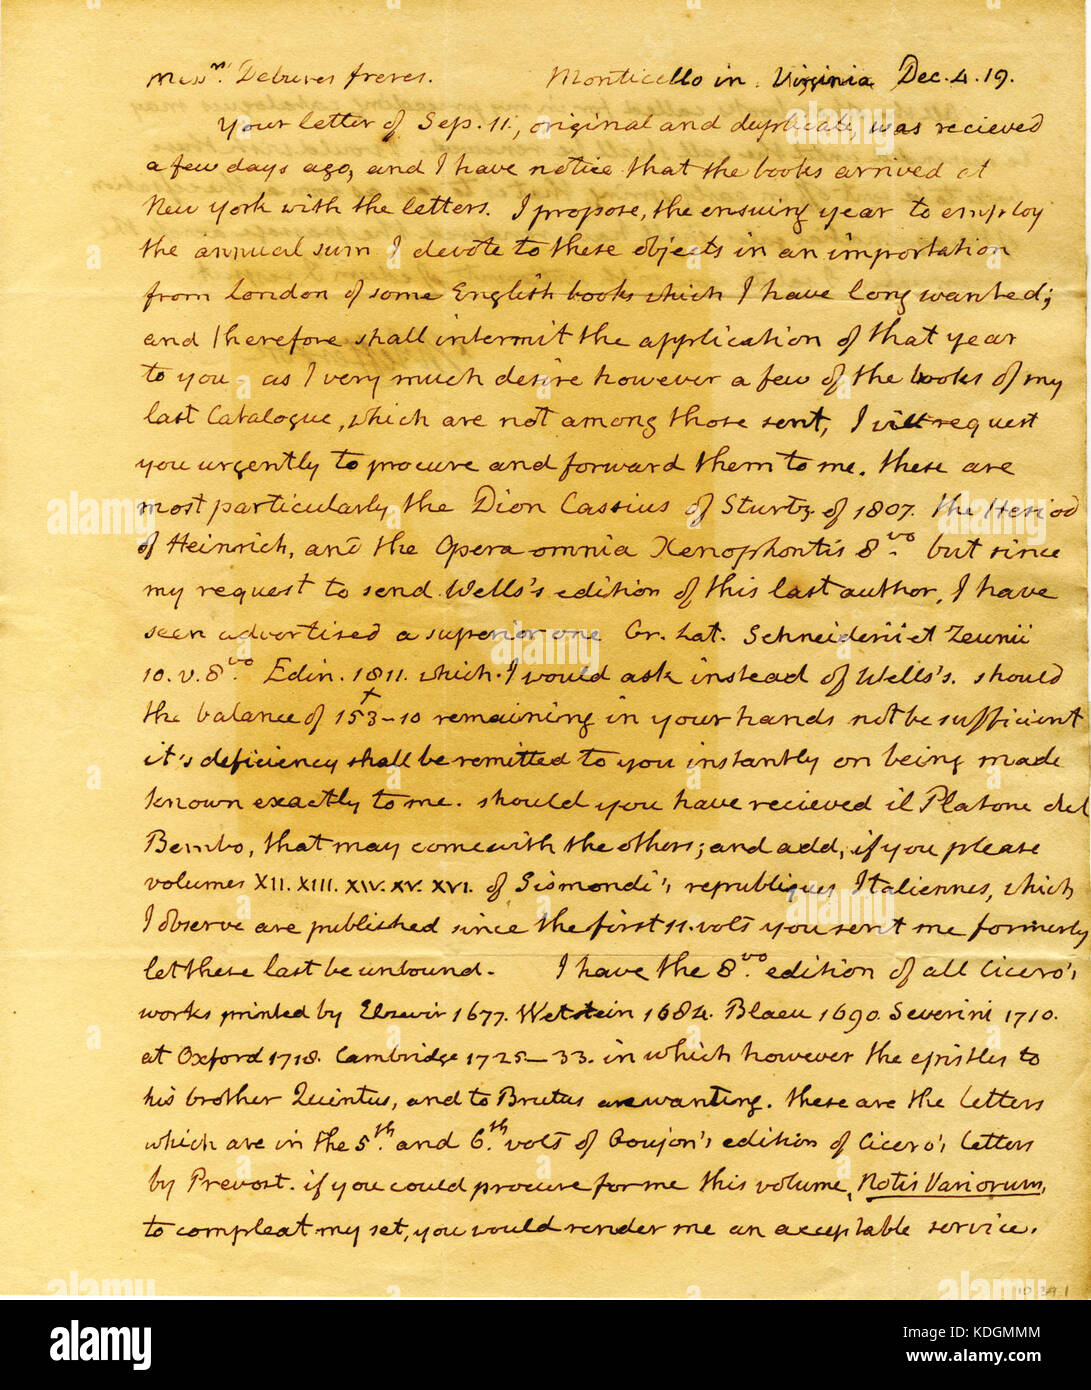 Mess^rs. Debures freres. Monticello in Virginia Dec. 4. 19.
Your letter of Sep. 11, original and duplicate, was recieved
a few days ago, and I have notice that the books arrived at
New York with the letters. I propose, the ensuing year to employ
the annual sum I devote to these objects in an importation
from London of some English books which I have long wanted;
and therefore shall intermit the application of that year
to you. as I very much desire however a few of the books of my
last catalogue, which are not among those sent, I will request
you urgently to procure and forward them to me. these are
most particularly the Dion Cassius of Sturtz of 1807. the Hesiod
of Heinrich, and the Opera omnia Xenophontis 8^vo. but since
my request to send Wells's edition of this last author, I have
seen advertised a superior one Gr. Lat. Schneiderii et Zeunii
10. v. 8^vo. Edin. 1811. which I would ask instead of Wells's. should
the balance of 153-10 remaining in your hands not be sufficient
it's deficiency shall be remitted to you instantly on being made
known exactly to me. should you have recieved il Platone del
Bembo, that may come with the others; and add, if you please
volumes XII. XIII. XIV. XV. XVI. of Sismondi's republiques Italiennes, which
I observe are published since the first 11. vols you sent me formerly
let these last be unbound. - I have the 8^vo. edition of all Cicero's
works printed by Elzevir 1677. Wetstein 1684. Blaeu 1690. Severini 1710.
at Oxford 1718. Cambridge 1725-33. in which however the epistles to
his brother Quintus, and to Brutus are wanting. these are the letters
which are in the 5^th. and 6^th. vols of Goujon's edition of Cicero's letters
by Prevost. if you could procure for me this volume, Notis Variorum,
to compleat my set, you would render me an acceptable service.
alamy
Image ID: KDGMMM
www.alamy.com